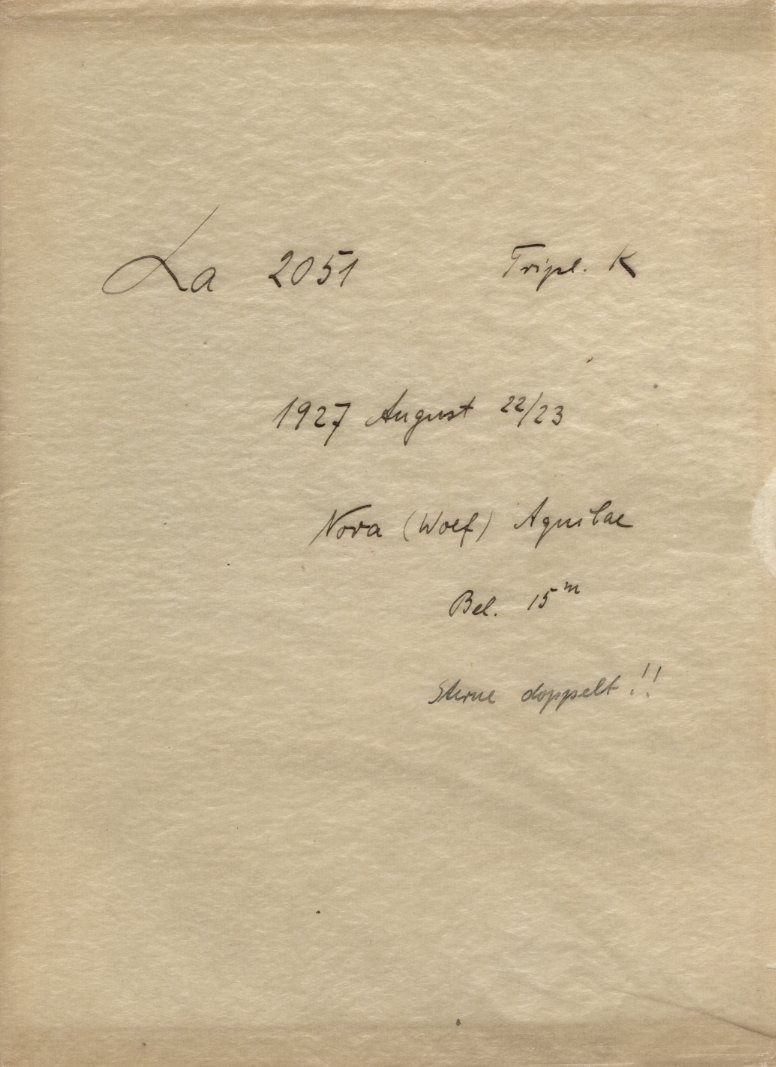 La 2051 Tripl. K
1927 August 22/23
Nova (Wolf) Aquilae
Bel. 15ᵐ
Sterne doppelt!!